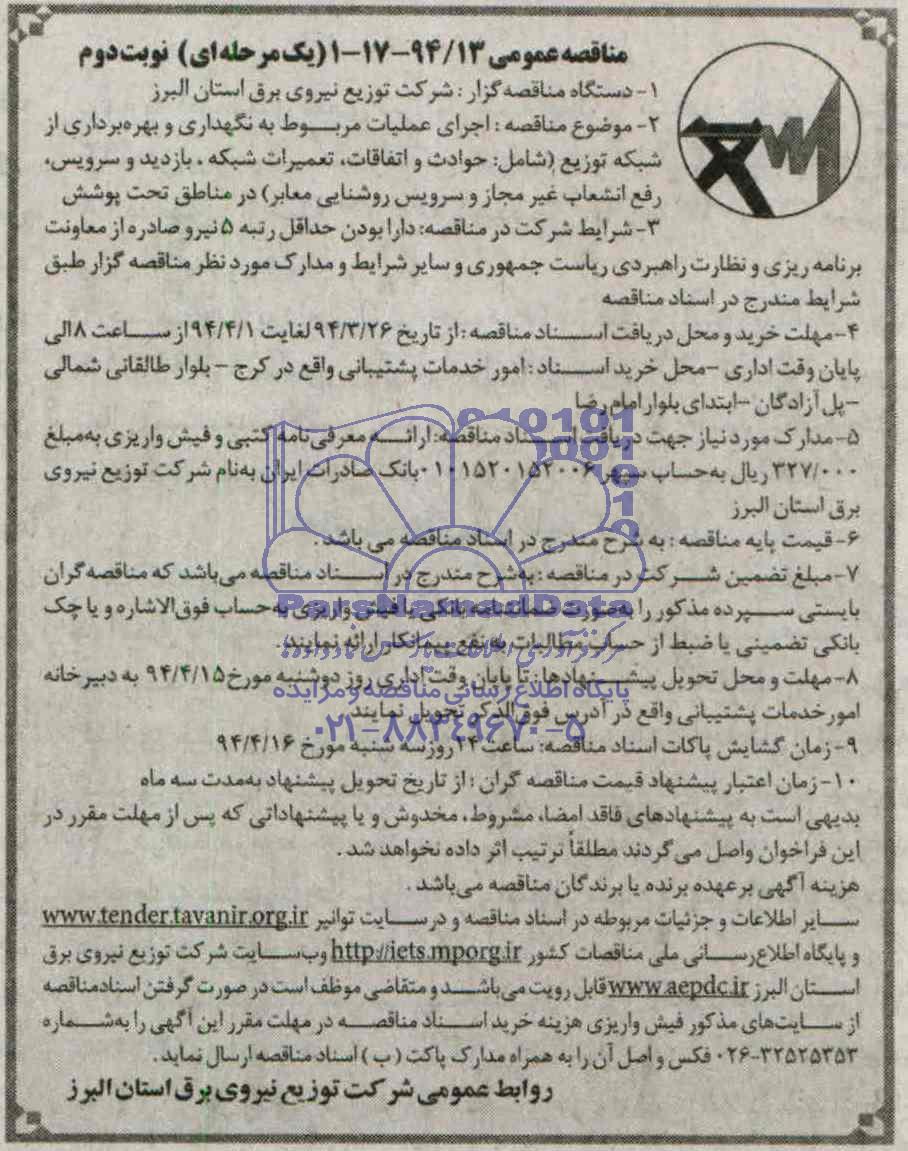 مناقصه عمومی ۹۴/۱۳-۱۷-۱ (یک مرحله ای) نوبت دوم
۱- دستگاه مناقصه گزار : شرکت توزیع نیروی برق استان البرز
۲- موضوع مناقصه : اجرای عملیات مربوط به نگهداری و بهره برداری از
شبکه توزیع (شامل: حوادث و اتفاقات، تعمیرات شبکه ، بازدید و سرویس،
رفع انشعاب غیر مجاز و سرویس روشنایی معابر) در مناطق تحت پوشش
۳- شرایط شرکت در مناقصه: دارا بودن حداقل رتبه ۵ نیرو صادره از معاونت
برنامه ریزی و نظارت راهبردی ریاست جمهوری و سایر شرایط و مدارک مورد نظر مناقصه گزار طبق
شرایط مندرج در اسناد مناقصه
۴- مهلت خرید و محل دریافت اسناد مناقصه : از تاریخ ۹۴/۳/۲۶ لغایت ۹۴/۴/۱ از ساعت ۸ الی
پایان وقت اداری - محل خرید اسناد : امور خدمات پشتیبانی واقع در کرج - بلوار طالقانی شمالی
- پل آزادگان - ابتدای بلوار امام رضا
۵- مدارک مورد نیاز جهت دریافت اسناد مناقصه: ارائه معرفی نامه کتبی و فیش واریزی به مبلغ
۳۲۷/۰۰۰ ریال به حساب سپهر ۰۱۰۱۵۲۰۱۵۲۰۰۶ بانک صادرات ایران به نام شرکت توزیع نیروی
برق استان البرز
۶- قیمت پایه مناقصه : به شرح مندرج در اسناد مناقصه می باشد .
۷- مبلغ تضمین شرکت در مناقصه : به شرح مندرج در اسناد مناقصه می باشد که مناقصه گران
بایستی سپرده مذکور را به صورت ضمانتنامه بانکی یا فیش واریزی به حساب فوق الاشاره و یا چک
بانکی تضمینی یا ضبط از حساب مطالبات به نفع پیمانکار ارائه نمایند.
۸- مهلت و محل تحویل پیشنهادها: تا پایان وقت اداری روز دوشنبه مورخ ۹۴/۴/۱۵ به دبیرخانه
امور خدمات پشتیبانی واقع در آدرس فوق الذکر تحویل نمایند
۹- زمان گشایش پاکات اسناد مناقصه: ساعت ۱۴ روز سه شنبه مورخ ۹۴/۴/۱۶
۱۰- زمان اعتبار پیشنهاد قیمت مناقصه گران : از تاریخ تحویل پیشنهاد به مدت سه ماه
بدیهی است به پیشنهادهای فاقد امضا، مشروط، مخدوش و یا پیشنهاداتی که پس از مهلت مقرر در
این فراخوان واصل می گردند مطلقاً ترتیب اثر داده نخواهد شد .
هزینه آگهی بر عهده برنده یا برندگان مناقصه می باشد .
سایر اطلاعات و جزئیات مربوطه در اسناد مناقصه و در سایت توانیر www.tender.tavanir.org.ir
و پایگاه اطلاع رسانی ملی مناقصات کشور http://iets.mporg.ir وب سایت شرکت توزیع نیروی برق
استان البرز www.aepdc.ir قابل رویت می باشد و متقاضی موظف است در صورت گرفتن اسناد مناقصه
از سایت های مذکور فیش واریزی هزینه خرید اسناد مناقصه در مهلت مقرر این آگهی را به شماره
۰۲۶-۳۲۵۲۵۳۵۳ فکس و اصل آن را به همراه مدارک پاکت ( ب ) اسناد مناقصه ارسال نماید .
روابط عمومی شرکت توزیع نیروی برق استان البرز
ParsNamadData
پایگاه اطلاع رسانی مناقصه و مزایده
۰۲۱-۸۸۳۴۹۶۷۰-۵